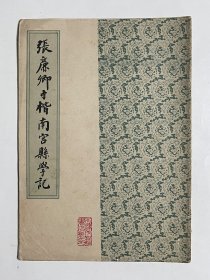 張廉卿寸楷南宮縣學記